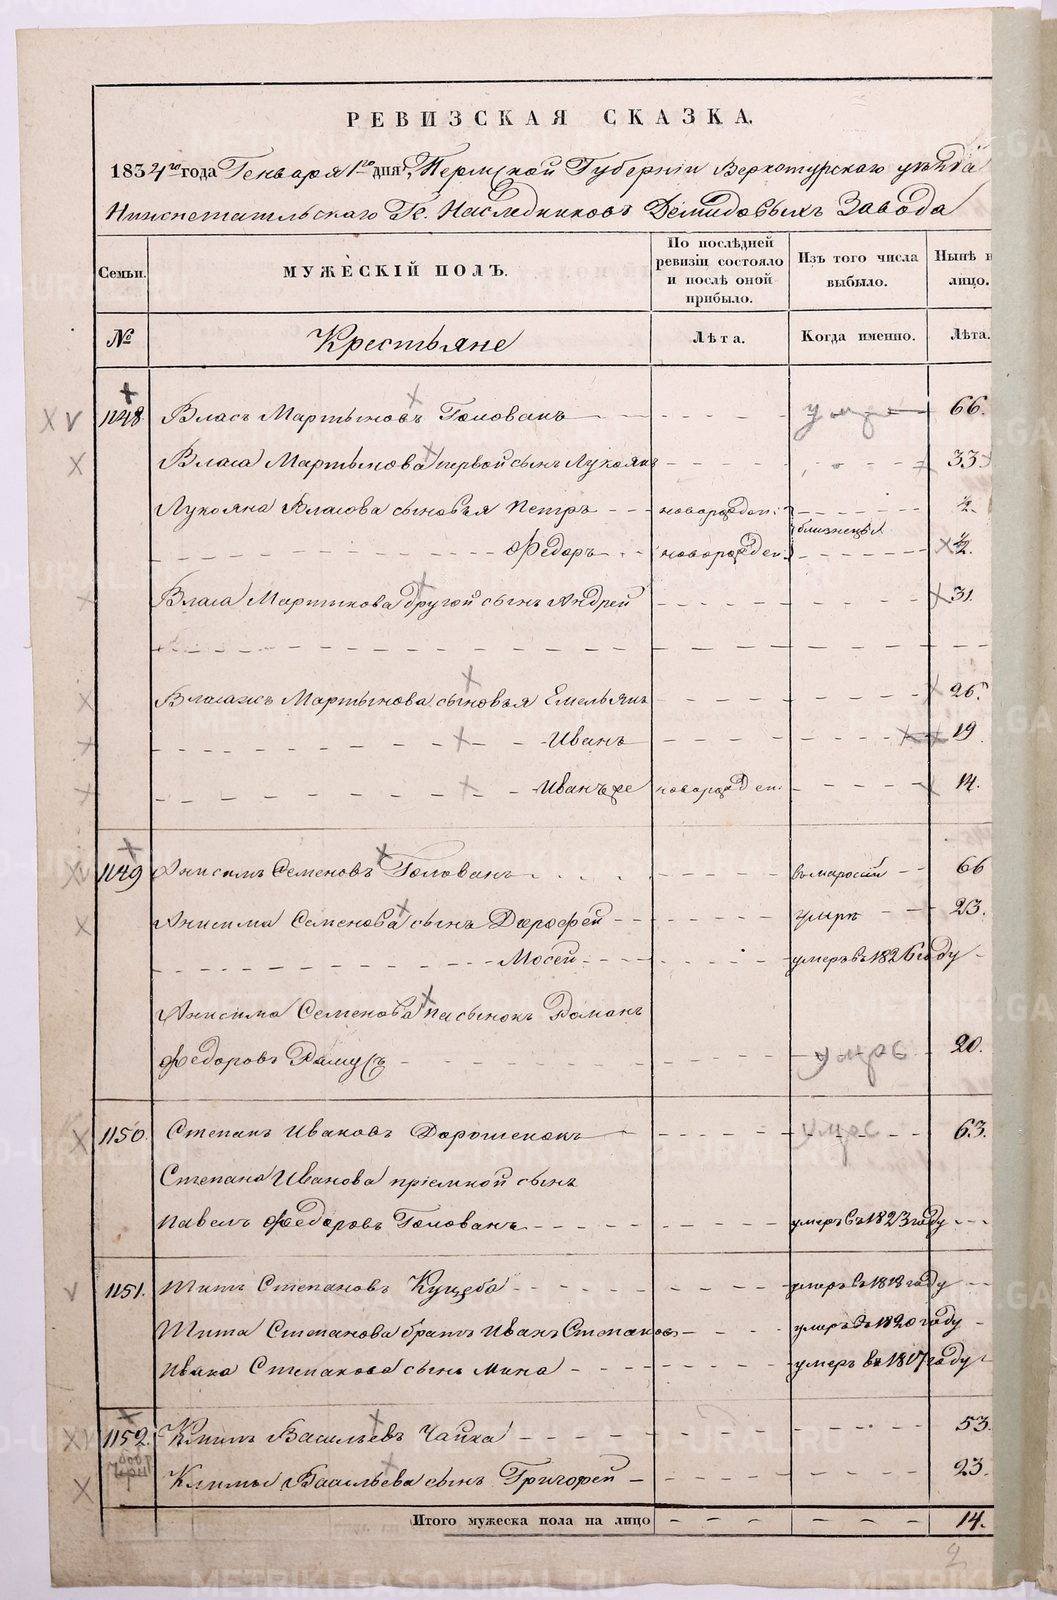 РЕВИЗСКАЯ СКАЗКА.
1834го года Генваря 1го дня, Пермской Губернiи Верхотурскаго уѣзда
Нижнетагильскаго Гг. Наслѣдниковъ Демидовыхъ Завода
Семьи.
МУЖЕСКIЙ ПОЛЪ.
По послѣдней ревизiи состояло и послѣ оной прибыло.
Изъ того числа выбыло.
Нынѣ н лицо.
№
Крестьяне
Лѣта.
Когда именно.
Лѣта.
1148. Власъ Мартыновъ Голованъ умре 66.
Власа Мартынова первой сынъ Лукоянъ 33
Лукояна Власова сыновья Петръ новорожден: близнецы
Федоръ новорожден.
Власа Мартинова другой сынъ Андрей 31.
Мартынова сыновья Емельянъ 26.
Иванъ 19
Иванъ же новорожден. 14.
1149 Анисимъ Семеновъ Голованъ 66
Анисима Семенова сынъ Дорофей умре 23.
Мосей умеръ въ 1826 году
Анисима Семенова пасынокъ Романъ
Федоровъ умре 20.
1150. Степанъ Ивановъ Дорошенокъ умре 63.
Степана Иванова прiемной сынъ
Павелъ Федоровъ Голованъ умеръ въ 1823 году
1151. Титъ Степановъ Куцеба умеръ въ 1818 году
Тита Степанова братъ Иванъ Степановъ умеръ въ 1820 году
Ивана Степанова сынъ Мина умеръ въ 1817 году
1152. Климъ Васильевъ Чайка 53.
Климы Васильева сынъ Григорей 23.
Итого мужеска пола на лицо 14.
2
METRIKI.GASO-URAL.RU